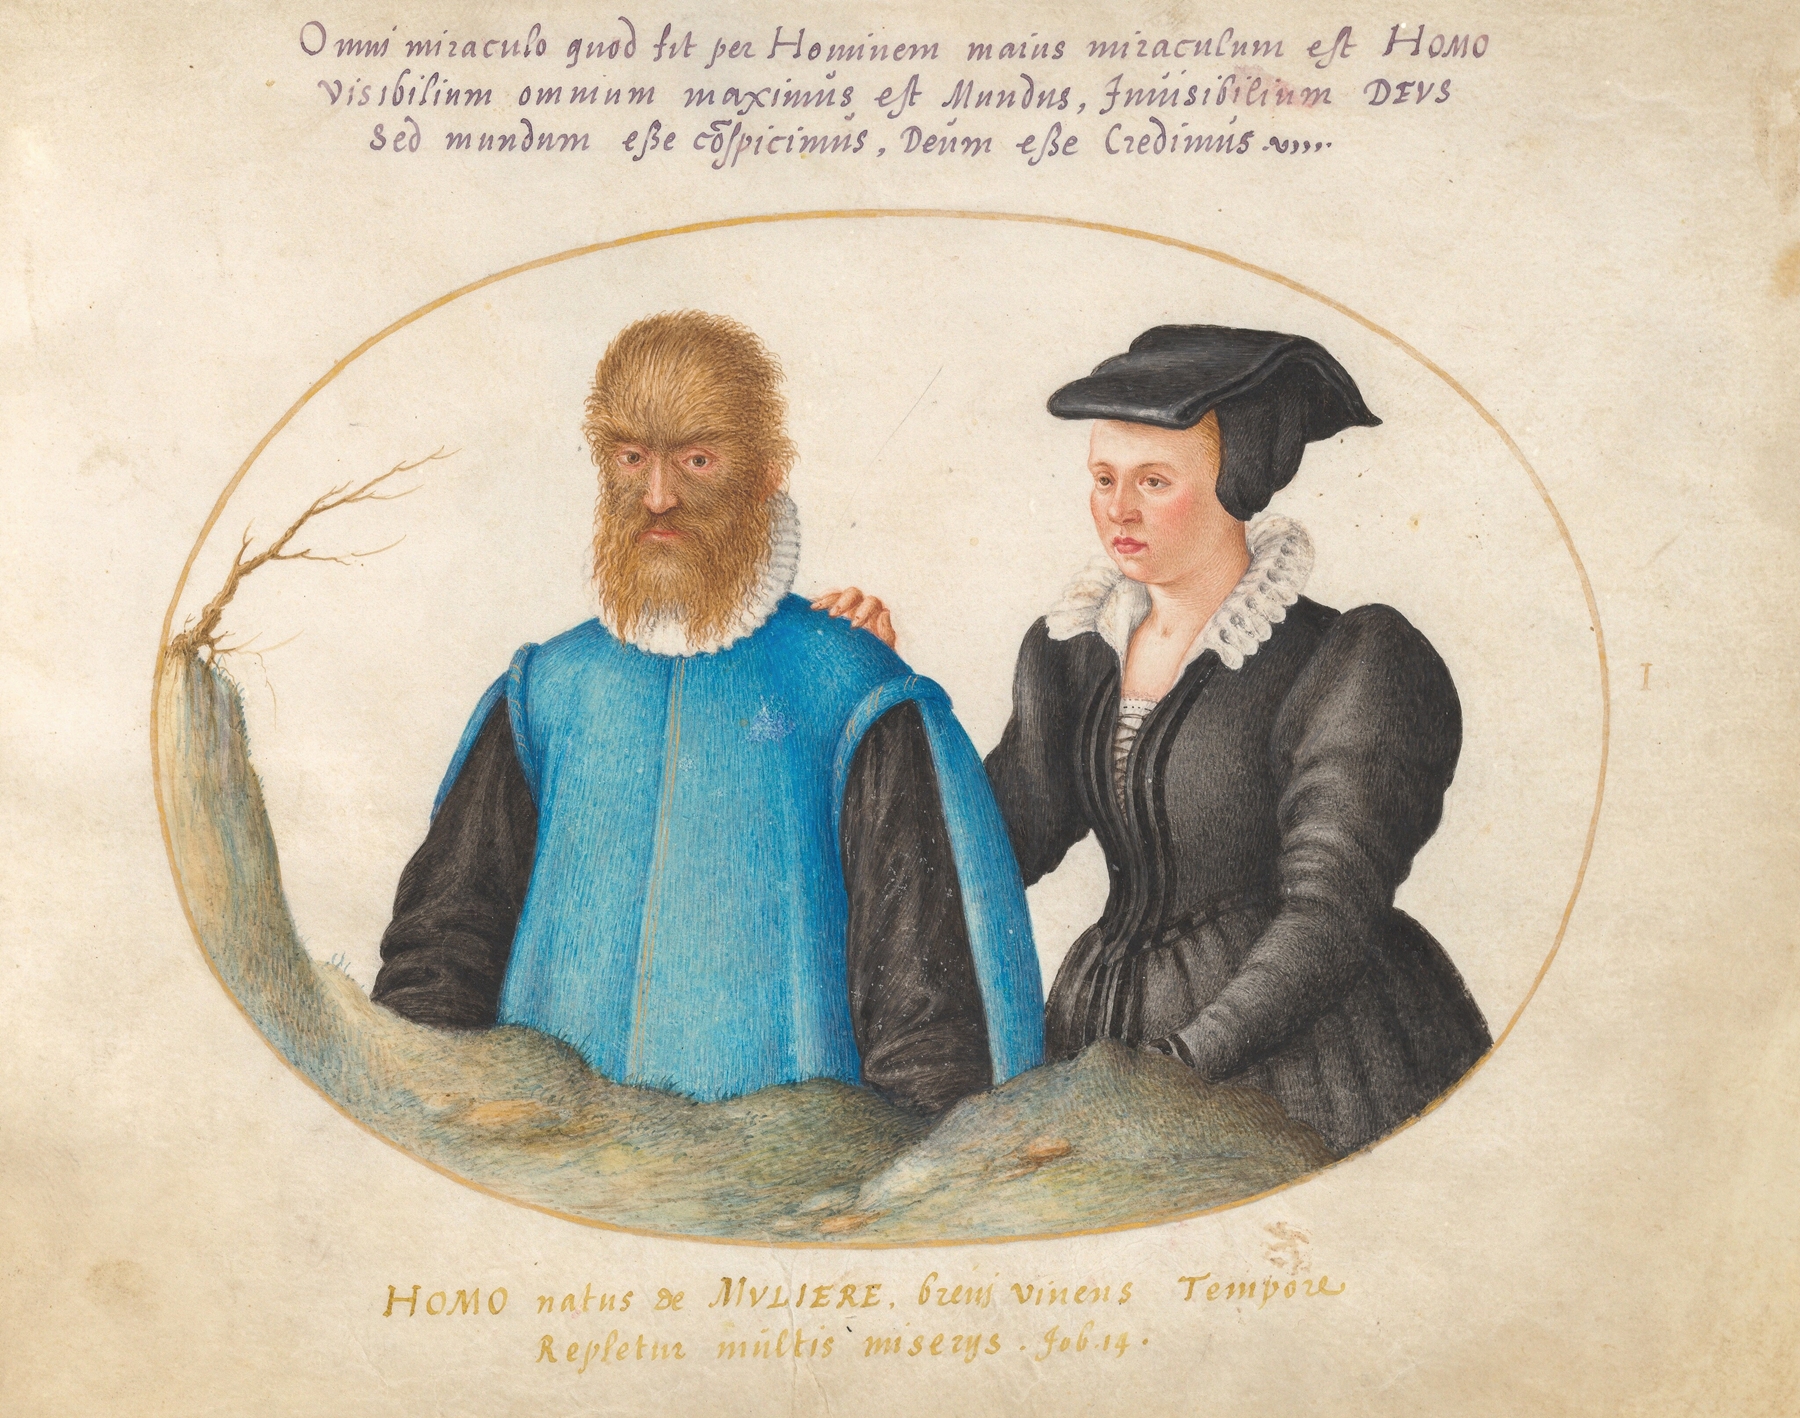 Omni miraculo quod fit per Hominem maius miraculum est HOMO
Visibilium omnium maximus est Mundus, Invisibilium DEVS
Sed mundum eße cōspicimus, Deum eße Credimus
I
HOMO natus de MVLIERE, breui viuens Tempore
Repletur multis miserijs. Job.14.